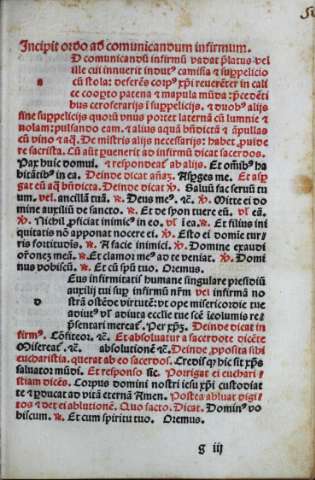 Incipit ordo ad comunicandum infirmum.
D comunicandũ infirmũ vadat p̃latus vel
ille cui innuerit indut⁹ camisia ⁊ sup̱pelicio
a cũ stola: deferẽs corp⁹ xp̃i reuerẽter in cali
ce coop̱to patena ⁊ mapula mũda: p̃cedẽti
bus ceroferarijs ĩ sup̱pelicijs. ⁊ duob⁹ alijs
sine sup̱pelicijs quorũ vnus portet laternã cũ lumine ⁊
nolam: pulsando eam. ⁊ alius aquã bñdictã ⁊ ãpullas
cũ vino ⁊ aq̃. De mistris alijs necessarijs: habet̃ puide
de sacrista. Cũ aũt puenerit ad infirmũ dicat sacerdos.
Pax huic domui. ⁊ respondeat̃ ab alijs. Et om̃ib⁹ ha
bitãtib⁹ in ea. Deinde dicat añaz. Asp̱ges me. Et asp̱
gat eũ aq̃ bñdicta. Deinde dicat ℣. Saluũ fac seruũ tu
um. vel. ancillã tuã. ℟. Deus me⁹. ⁊c̃. ℣. Mitte ei do
mine auxiliũ de sancto. ℟. Et de syon tuere eũ. vl̃ eã.
℣. Nichil p̱ficiat inimic⁹ in eo. vl̃ ĩ ea. ℟. Et filius ini
quitatis nõ apponat nocere ei. ℣. Esto ei dom̃e tur
ris fortitudis. ℟. A facie inimici. ℣. Domine exaudi
or̃onez meã. ℟. Et clamor me⁹ ad te veniat. ℣. Domi
nus vobiscũ. ℟. Et cũ sp̃u tuo. Oremus.
Eus infirmitatis humane singulare presidiũ
auxilij tui sup infirmũ nr̃m vel infirmã no
D strã ostẽde virtutẽ: vt ope misericordie tue
adiut⁹ vl̃ adiuta ecclie tue scẽ icolumis re
p̃sentari mereat̃. Per xp̃z. Deinde dicat in
firm⁹. Cõfiteor. ⁊c̃. Et absoluatur a sacerdote dicẽte
Misereat̃. ⁊c̃. absolutionẽ ⁊c̃. Deinde p̱posita sibi
eucharistia. q̃rat ab eo sacerdos. Credis q̃ hic sit xp̃s
saluator mũdi. Et responso sic. Porrigat ei euchari
stiam dicẽs. Corpus domini nostri iesu xp̃i custodiat
te ⁊ p̱ducat ad vitã eternã Amen. Postea abluat digi
tos ⁊ det ei ablutionẽ. Quo facto. Dicat. Domin⁹ vo
biscum. ℟. Et cum spiritu tuo. Oremus.
g iij